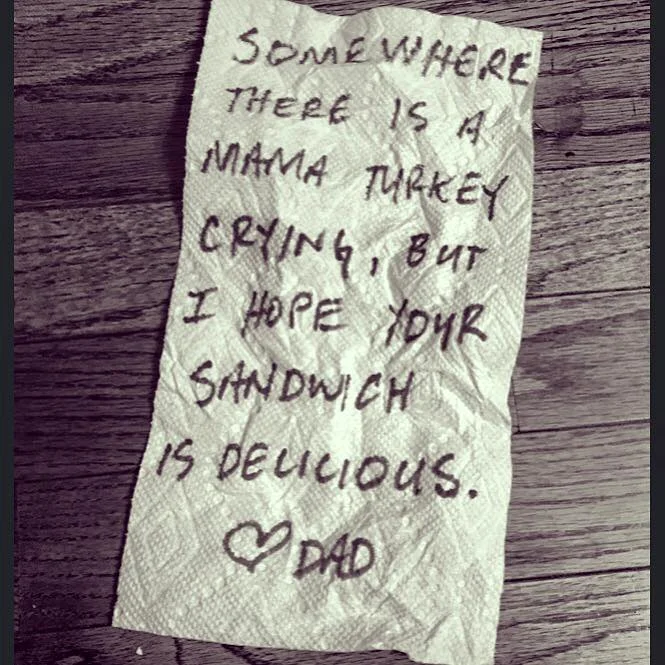 SOMEWHERE
THERE IS A
MAMA TURKEY
CRYING, BUT
I HOPE YOUR
SANDWICH
IS DELICIOUS.
♡ DAD